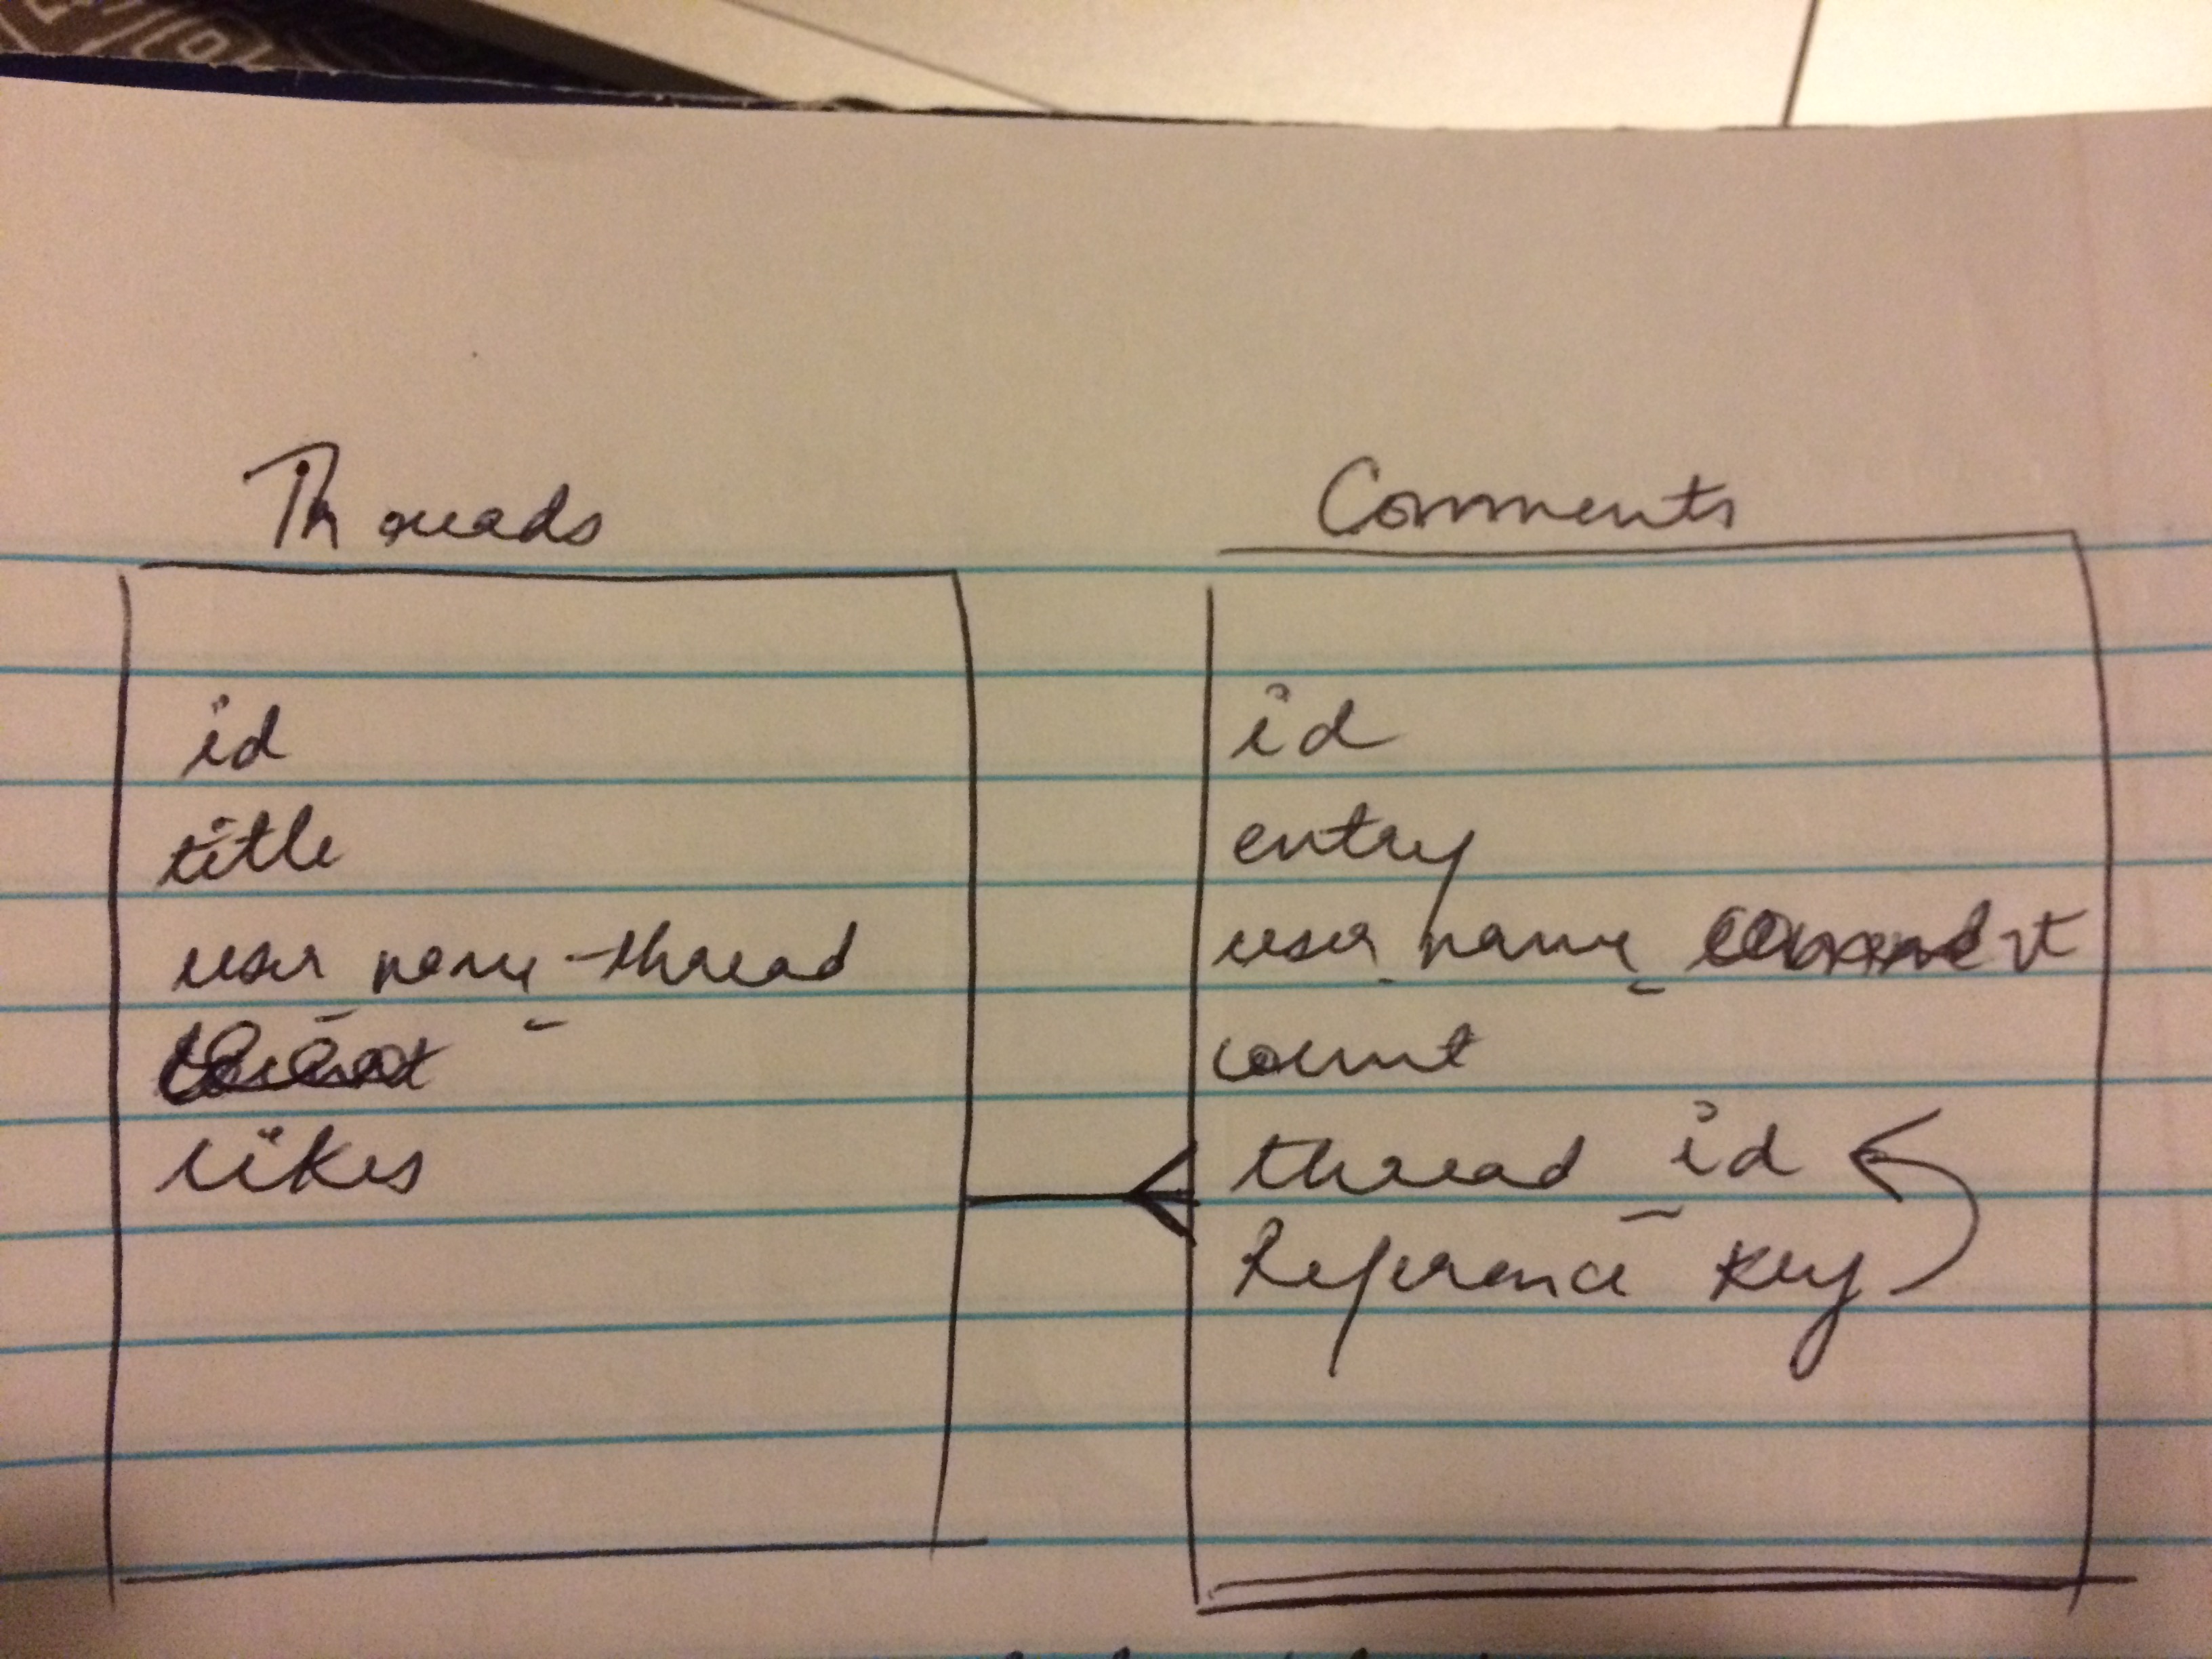 Threads
id
title
user name_thread
likes
Comments
id
entry
user name_
count
thread_id
Reference key